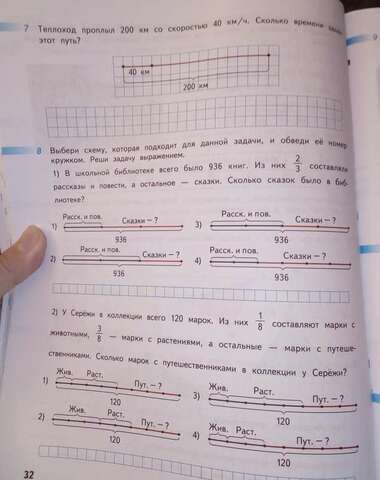 7 Теплоход проплыл 200 км со скоростью 40 км/ч. Сколько времени
этот путь?
40 км
200 км
8 Выбери схему, которая подходит для данной задачи, и обведи её номер
кружком. Реши задачу выражением.
1) В школьной библиотеке всего было 936 книг. Из них 2/3 составляли
рассказы и повести, а остальное — сказки. Сколько сказок было в биб-
лиотеке?
1) Расск. и пов. Сказки – ?
936
3) Расск. и пов. Сказки – ?
936
2) Расск. и пов. Сказки – ?
936
4) Расск. и пов. Сказки – ?
936
2) У Серёжи в коллекции всего 120 марок. Из них 1/8 составляют марки с
животными, 3/8 — марки с растениями, а остальные — марки с путеше-
ственниками. Сколько марок с путешественниками в коллекции у Серёжи?
1) Жив. Раст. Пут. – ?
120
3) Жив. Раст. Пут. – ?
120
2) Жив. Раст. Пут. – ?
120
4) Жив. Раст. Пут. – ?
120
32
9